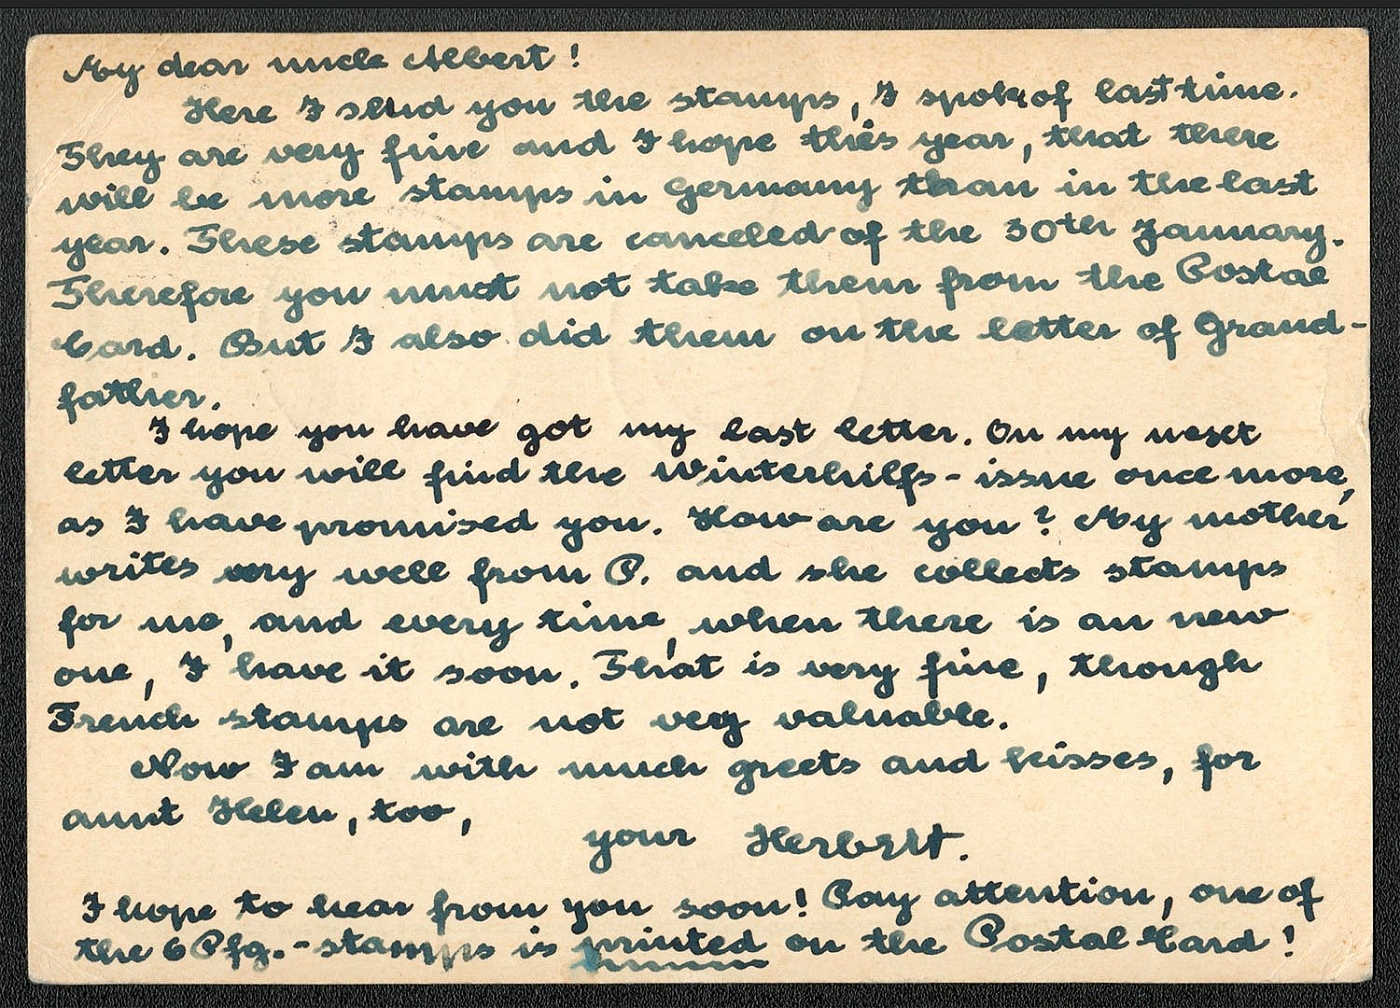 My dear uncle Albert!
Here I send you the stamps, I spoke of last time.
They are very fine and I hope this year, that there
will be more stamps in Germany than in the last
year. These stamps are canceled of the 30th January.
Therefore you must not take them from the Postal
Card. But I also did them on the letter of Grand-
father.
I hope you have got my last letter. On my next
letter you will find the Winterhilfs-issue once more,
as I have promised you. How are you? My mother
writes very well from P. and she collects stamps
for me, and every time, when there is an new
one, I have it soon. That is very fine, though
French stamps are not very valuable.
Now I am with much greets and kisses, for
aunt Helen, too,
your Herbert.
I hope to hear from you soon! Pay attention, one of
the 6 Pfg.-stamps is printed on the Postal Card!